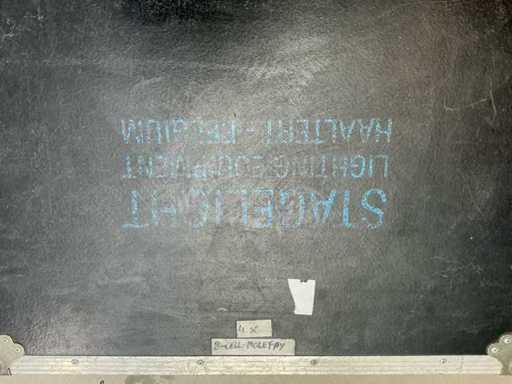 STAGELIGHT
LIGHTING EQUIPMENT
HAALTERT - BELGIUM
4 x
8-CELL MOLEFAY